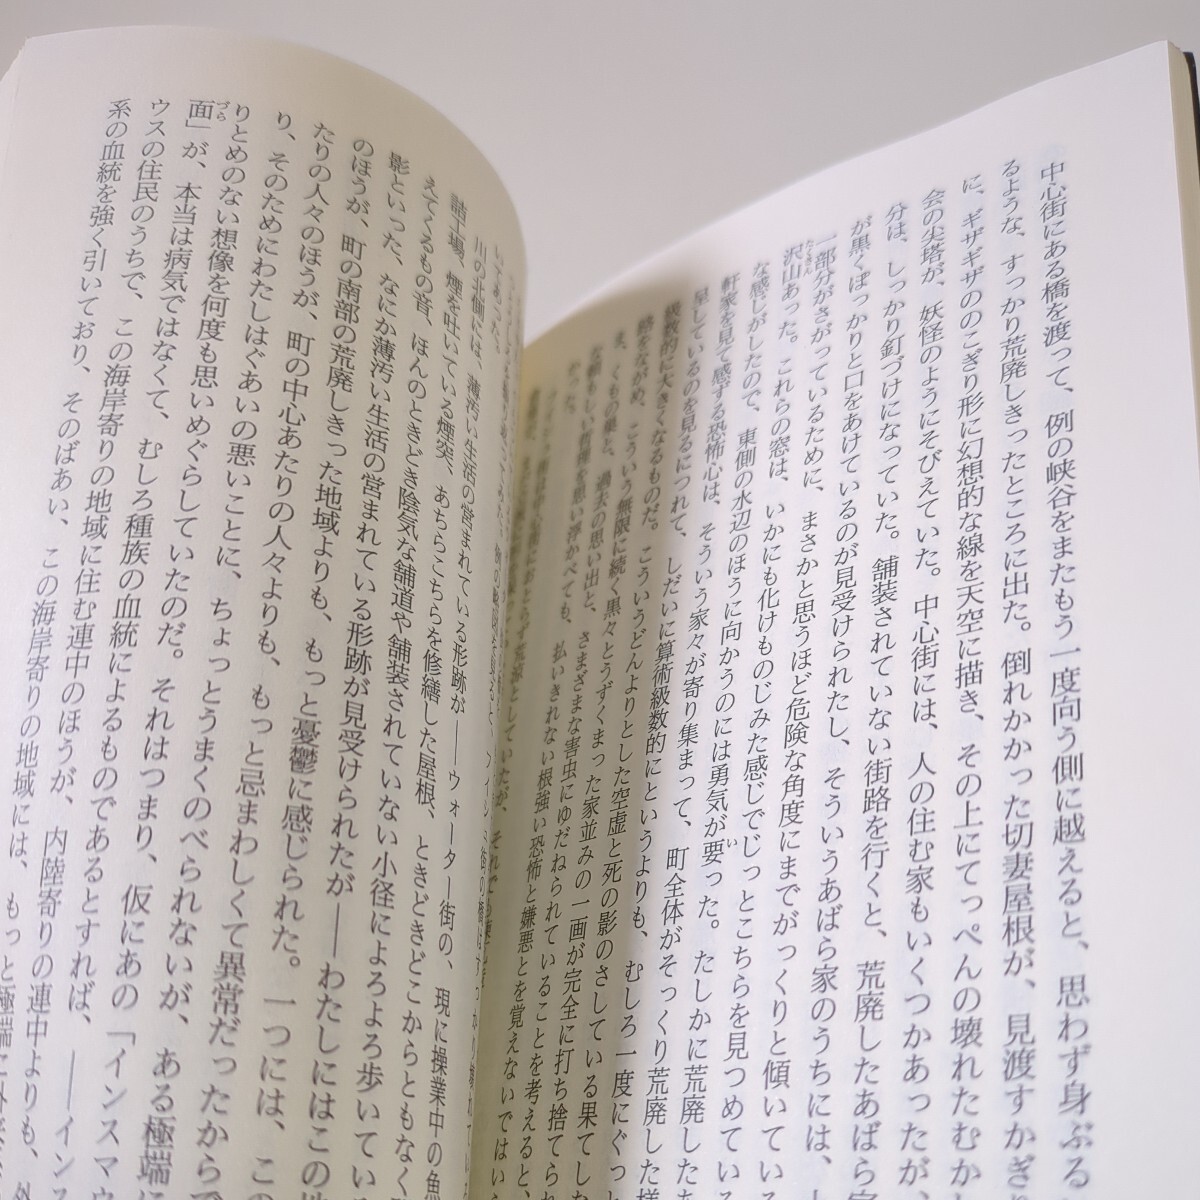 中心街にある橋を渡って、例の峡谷をまたもう一度向う側に越えると、思わず身ぶる
るような、すっかり荒廃しきったところに出た。倒れかかった切妻屋根が、見渡すかぎ
に、ギザギザののこぎり形に幻想的な線を天空に描き、その上にてっぺんの壊れたむか
会の尖塔が、妖怪のようにそびえていた。中心街には、人の住む家もいくつかあったが、
分は、しっかり釘づけになっていた。舗装されていない街路を行くと、荒廃したあばら家
が黒くぽっかりと口をあけているのが見受けられたし、そういうあばら家のうちには、
一部分がさがっているために、まさかと思うほど危険な角度にまでがっくりと傾いている
沢山あった。これらの窓は、いかにも化けものじみた感じでじっとこちらを見つめている
な感じがしたので、東側の水辺のほうに向かうのには勇気が要った。たしかに荒廃した
軒家を見て感ずる恐怖心は、そういう家々が寄り集まって、町全体がそっくり荒廃した様
呈しているのを見るにつれて、しだいに算術級数的にというよりも、むしろ一度にぐっ
級数的に大きくなるものだ。こういうどんよりとした空虚と死の影のさしている果てしな
路をながめ、こういう無限に続く黒々とうずくまった家並みの一画が完全に打ち捨てら
ま、くもの巣と、過去の思い出と、さまざまな害虫にゆだねられていることを考えると、
な頼もしい哲理を思い浮かべても、払いきれない根強い恐怖と嫌悪とを覚えないではい
かった。
いてあった。
川の北側には、薄汚い生活の営まれている形跡が――ウォーター街の、現に操業中の魚
詰工場、煙を吐いている煙突、あちらこちらを修繕した屋根、ときどきどこからともなく
えてくるもの音、ほんのときどき陰気な舗道や舗装されていない小径によろよろ歩いている
影といった、なにか薄汚い生活の営まれている形跡が見受けられたが――わたしにはこの
のほうが、町の南部の荒廃しきった地域よりも、もっと憂鬱に感じられた。一つには、こ
たりの人々のほうが、町の中心あたりの人々よりも、もっと忌まわしくて異常だったからで
り、そのためにわたしはぐあいの悪いことに、ちょっとうまくのべられないが、ある極端に
りとめのない想像を何度も思いめぐらしていたのだ。それはつまり、仮にあの「インスマウ
面」が、本当は病気ではなくて、むしろ種族の血統によるものであるとすれば、――インス
ウスの住民のうちで、この海岸寄りの地域に住む連中のほうが、内陸寄りの連中よりも、外
系の血統を強く引いており、そのばあい、この海岸寄りの地域には、もっと極端に